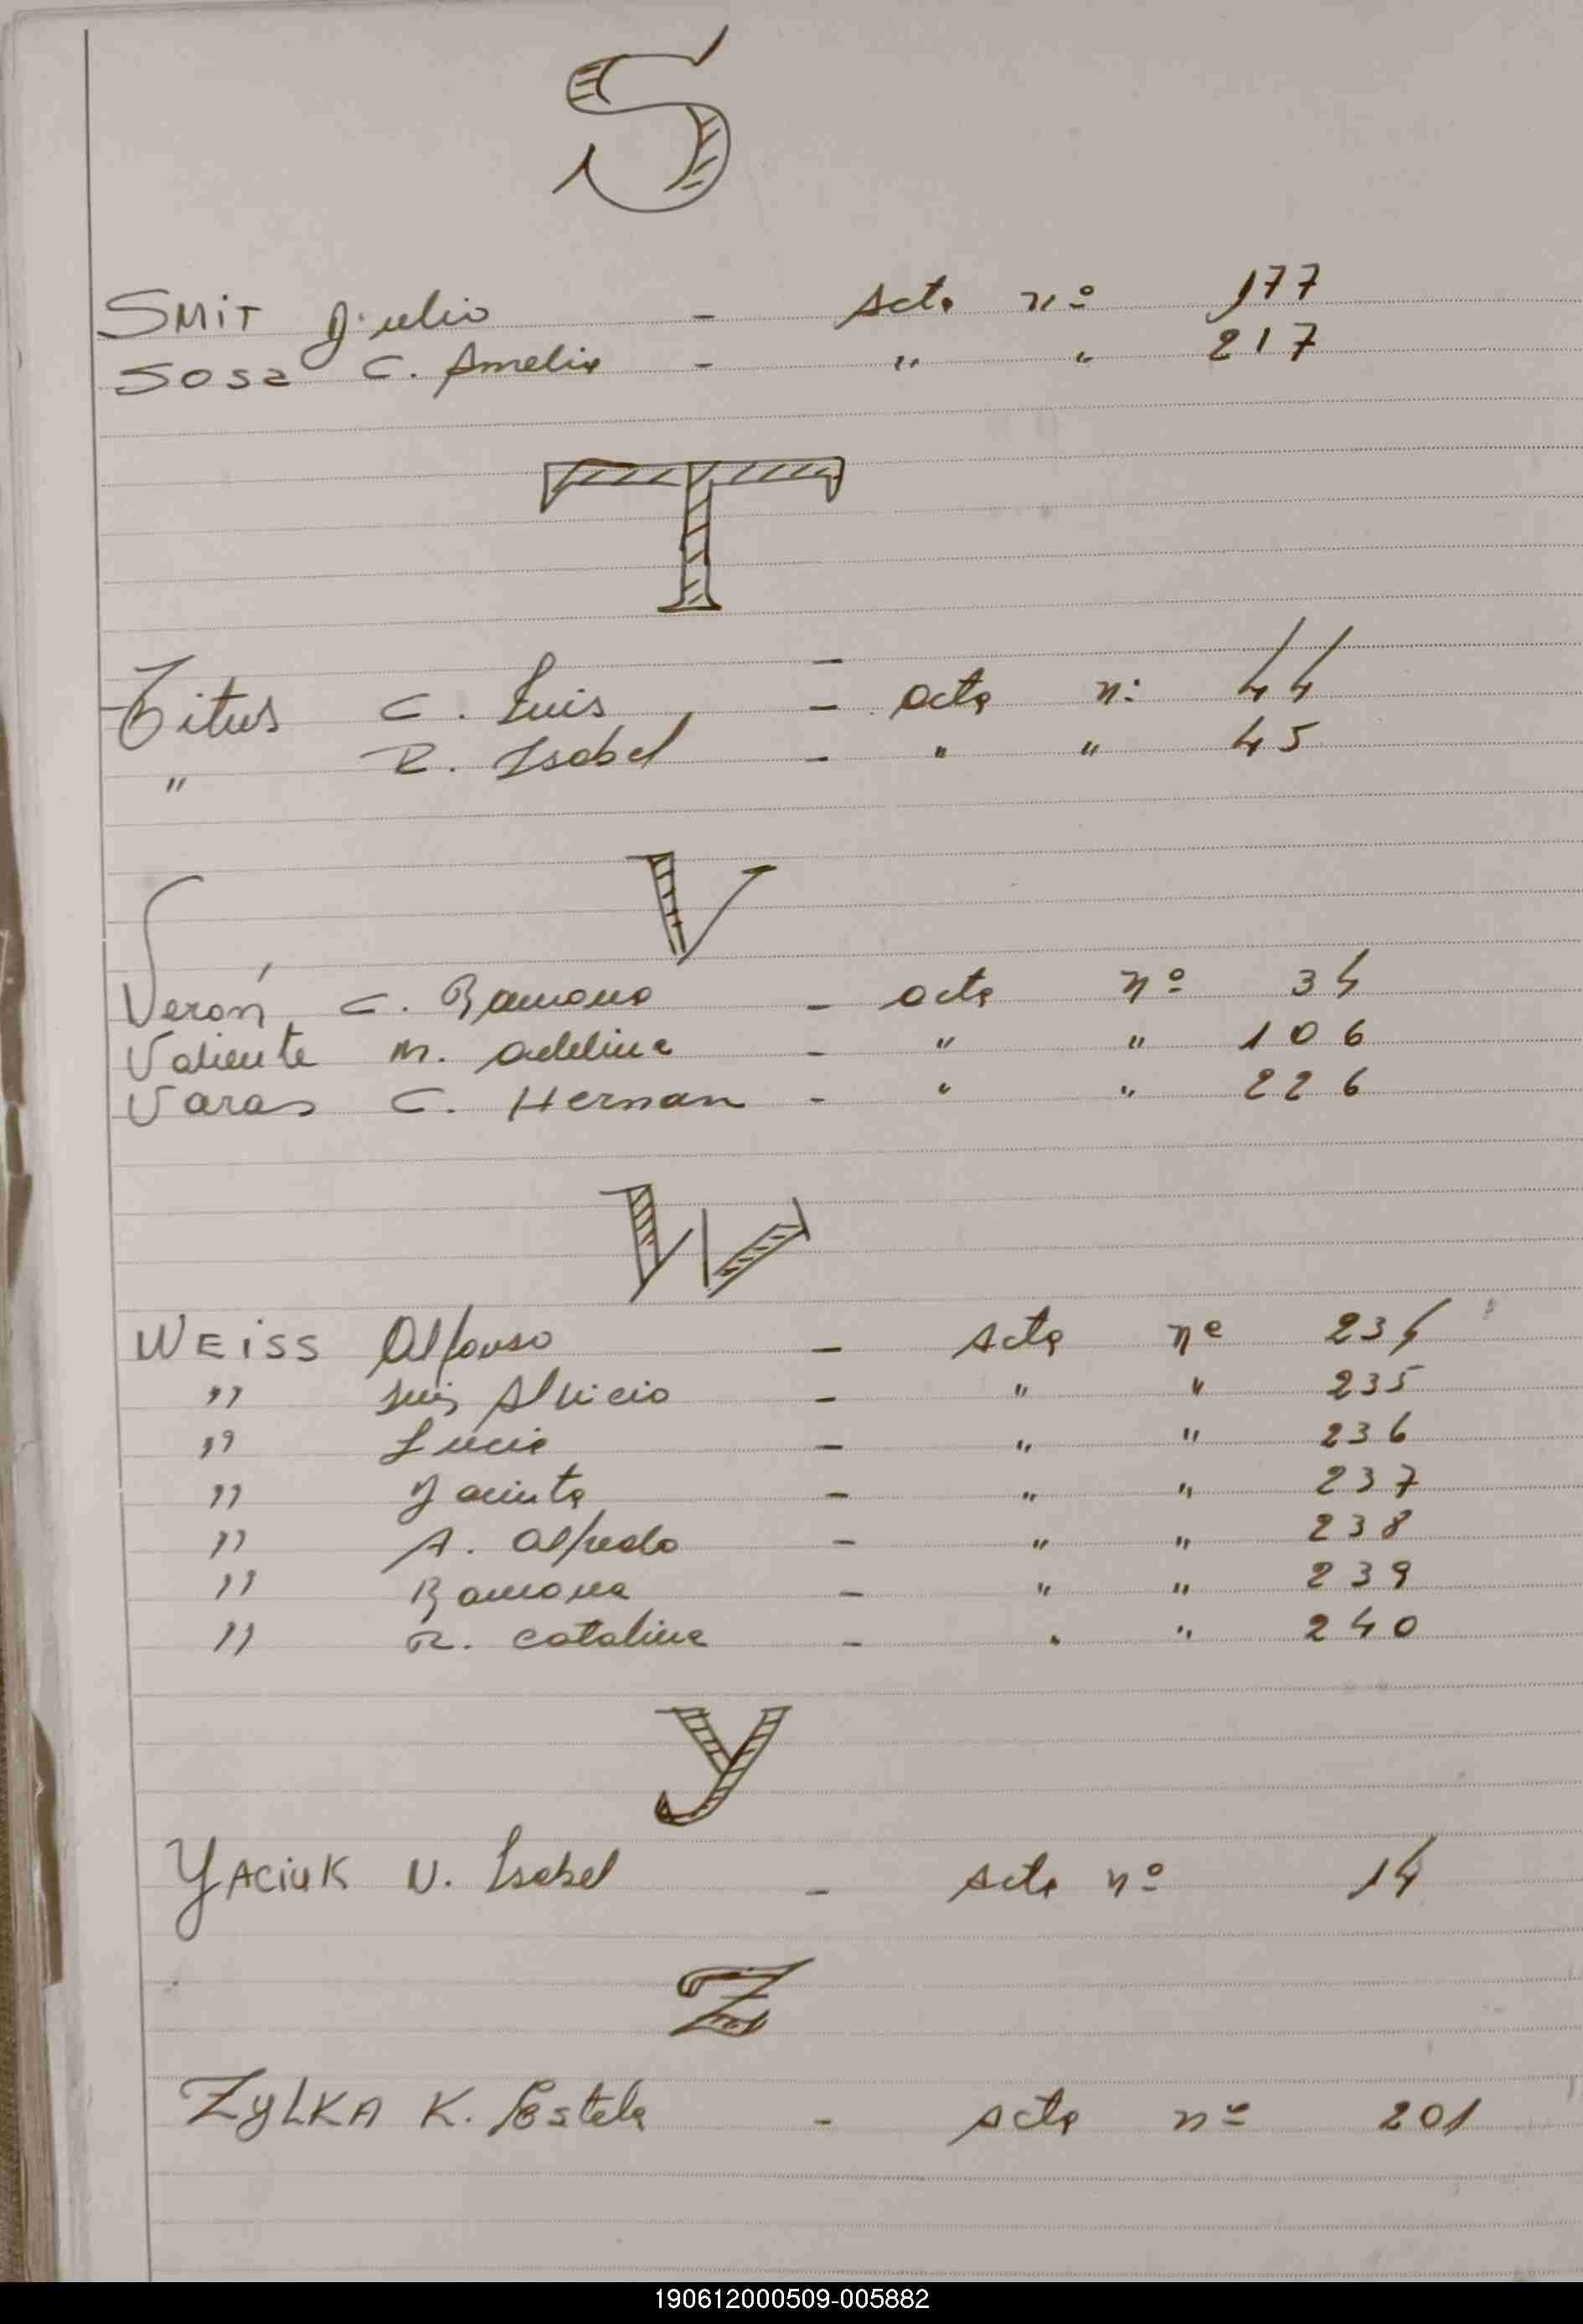 S
SMiT Julio - Acta nº 177
Sosa C. Amelia - " " 217
T
Titus C. Luis - acta nº 44
" R. Isabel - " " 45
V
Verón C. Ramona - acta nº 34
Valiente M. Adelina - " " 106
Varas C. Hernan - " " 226
W
WEiSS Alfonso - Acta nº 234
" Luis - " " 235
" Lucia - " " 236
" Jacinta - " " 237
" A. Alfredo - " " 238
" Ramona - " " 239
" R. Catalina - " " 240
Y
YACiuK N. Isabel - Acta nº 14
Z
ZYLKA K. Estela - Acta nº 201
190612000509-005882